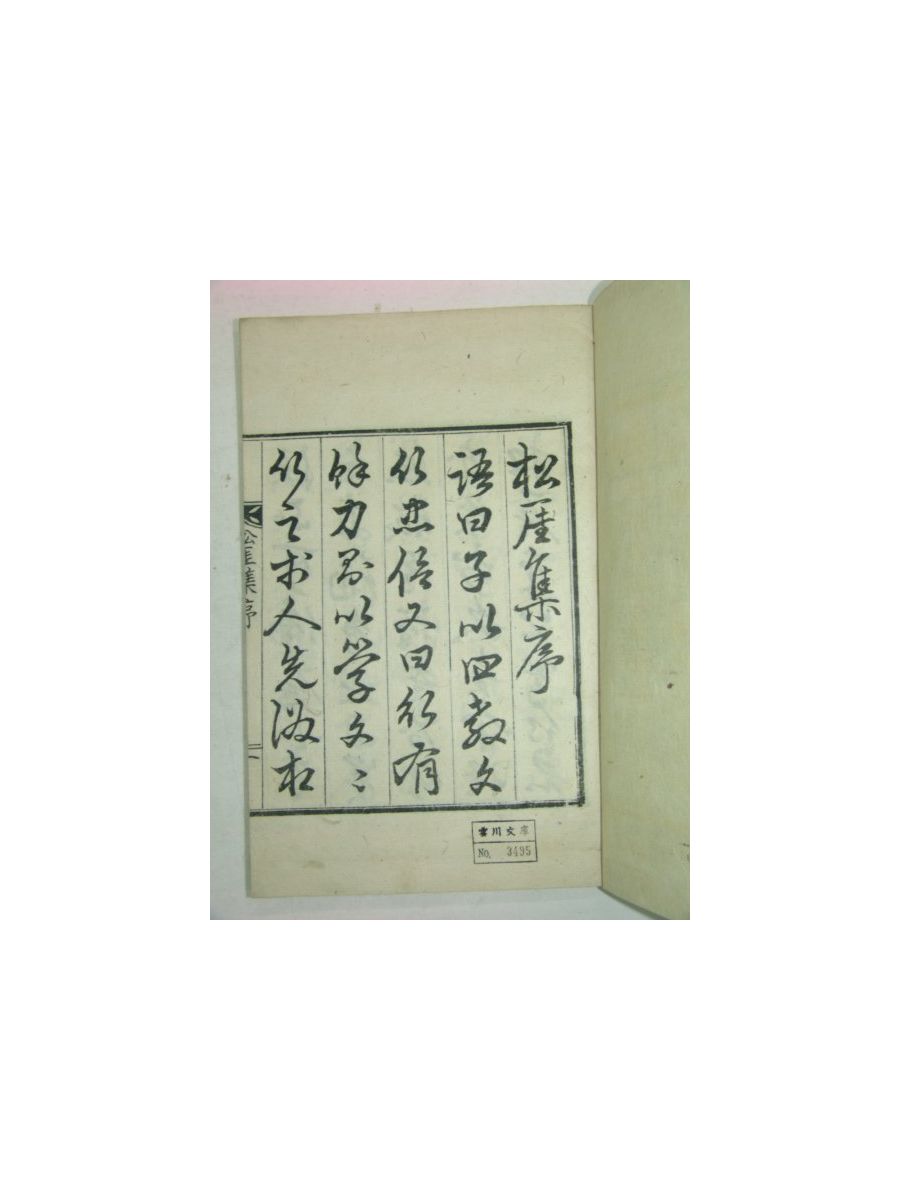 松厓集序
語曰子以四教文
行忠信又曰行有
餘力則以學文〻
行之於人先後相
松厓集序
一
雲川文庫
No. 3495